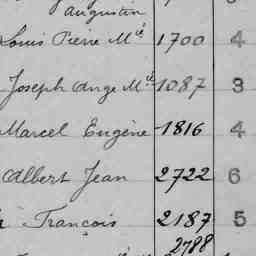 Augustin
Louis Pierre Mie 1700 4
Joseph Ange Mie 1087 3
Marcel Eugène 1816 4
Albert Jean 2722 6
François 2187 5
2788